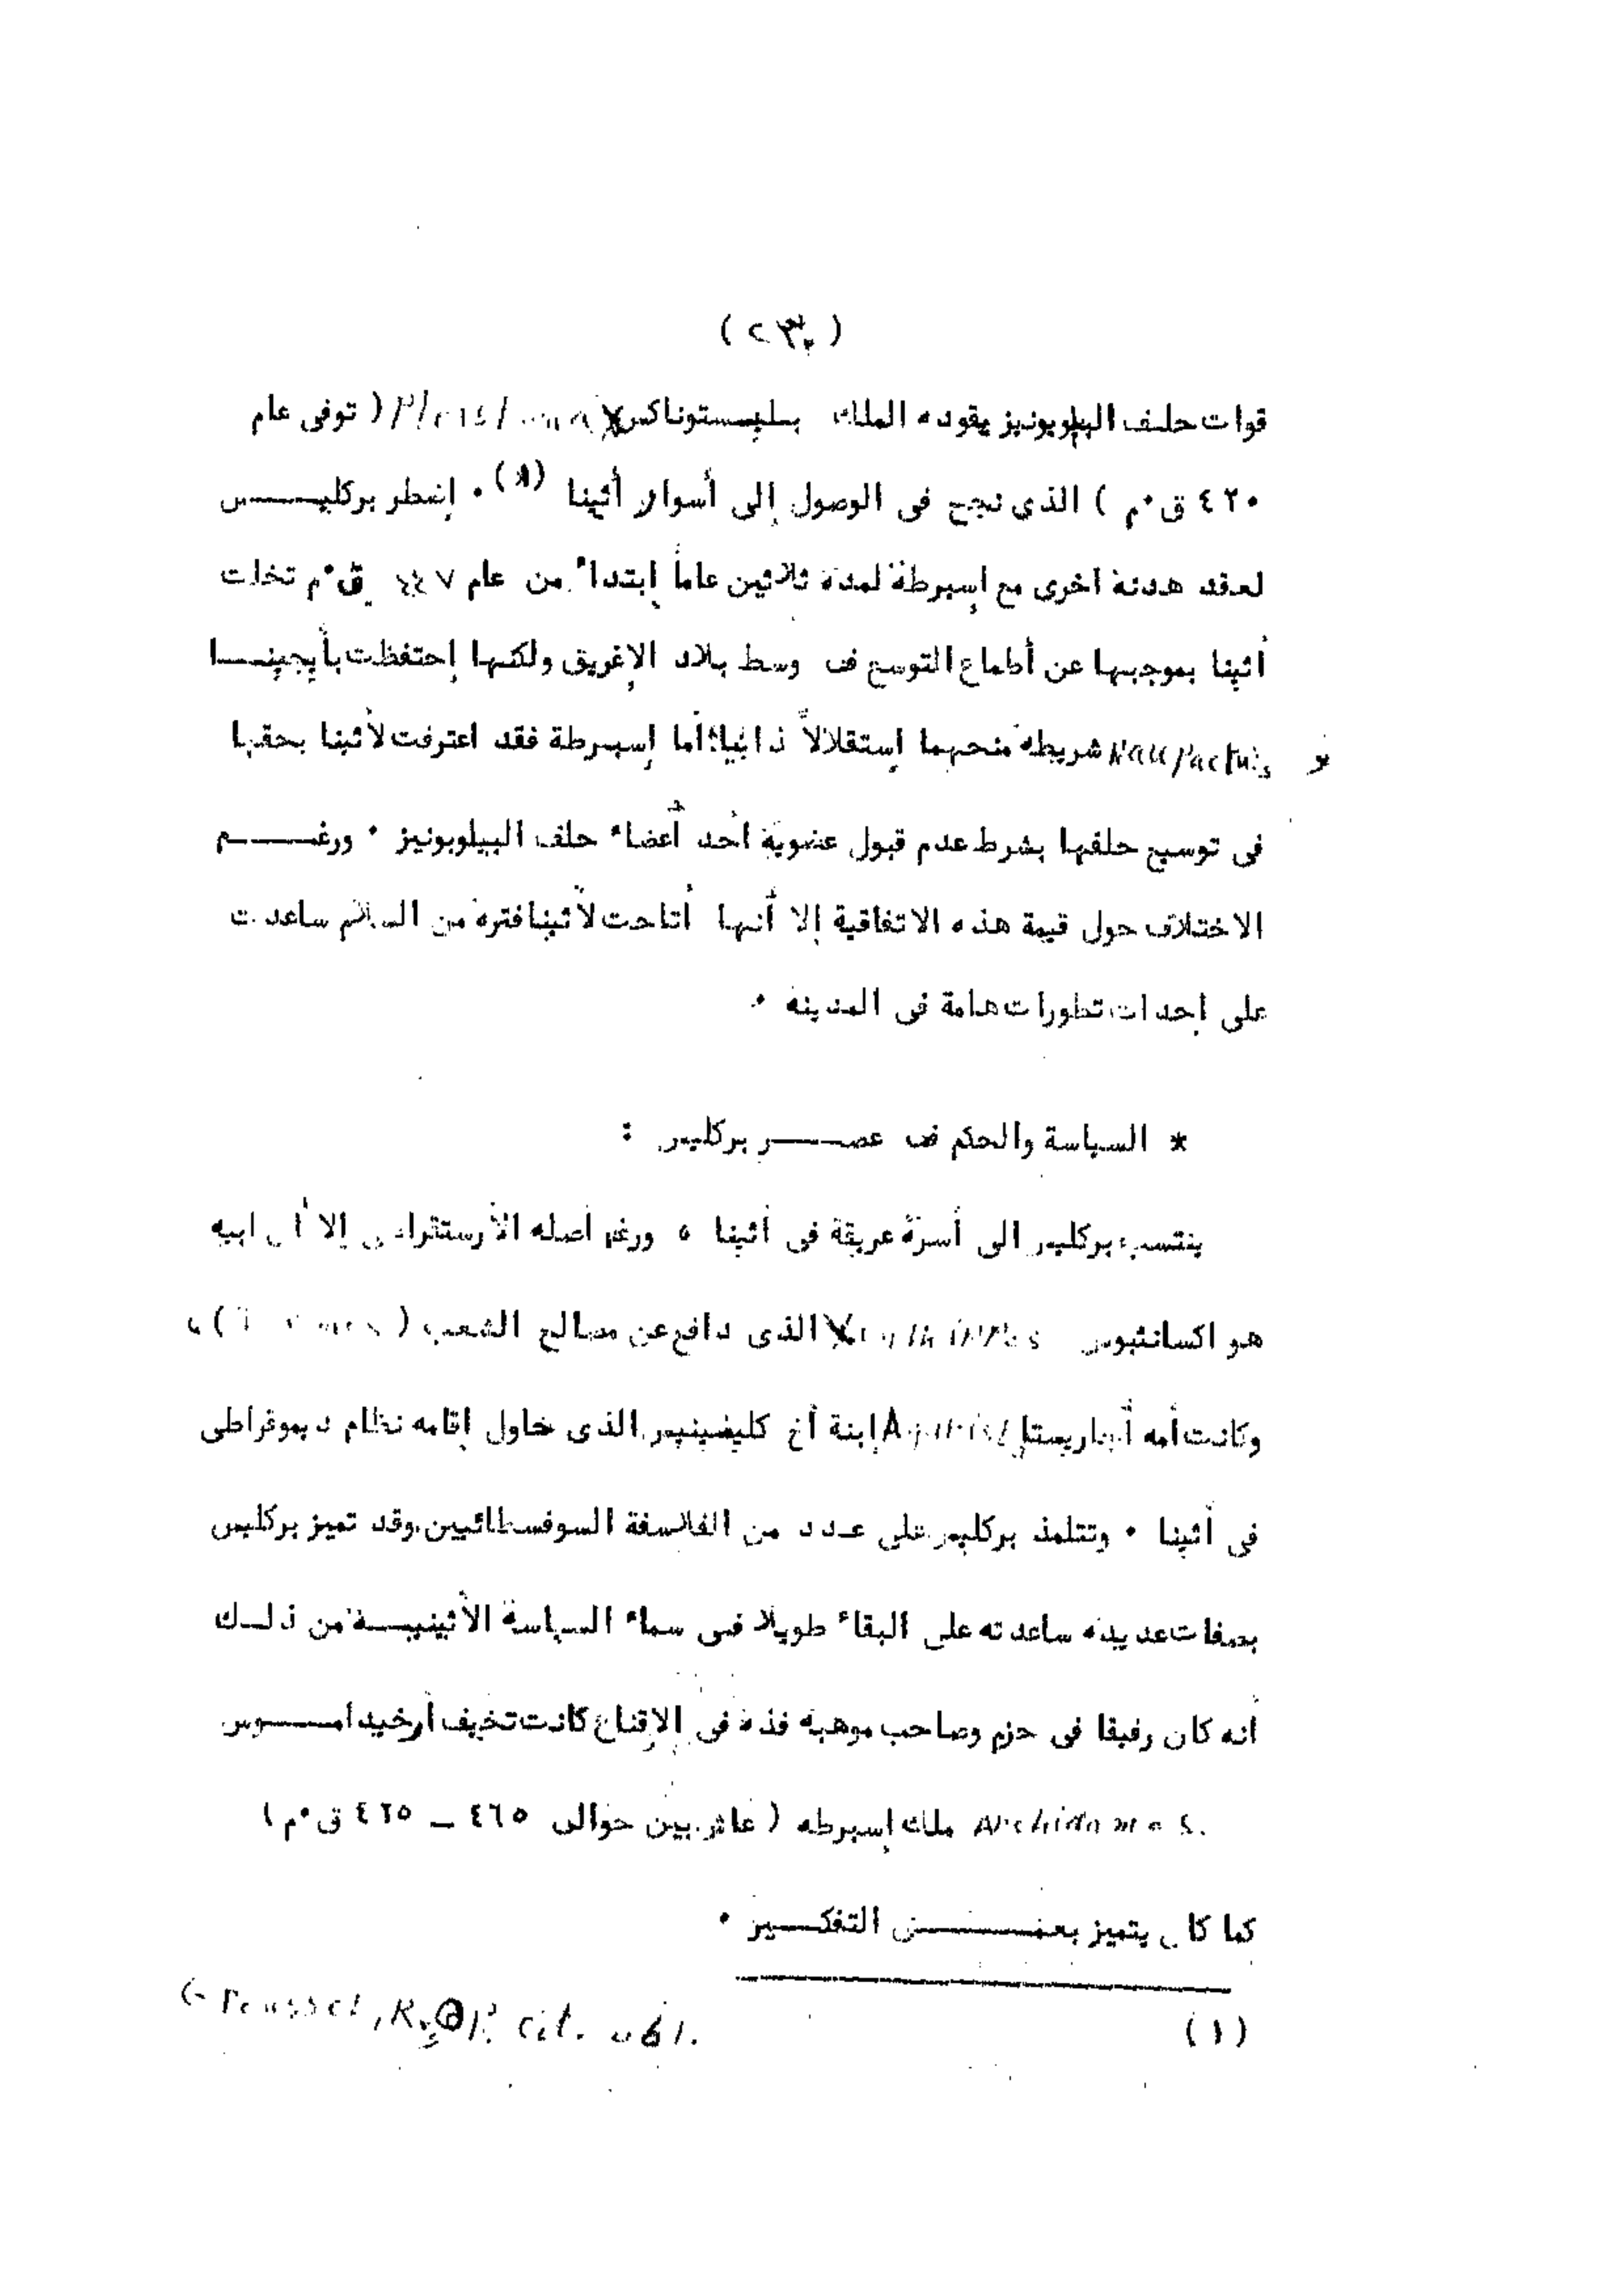 (٢٣٠)
قوات حلف البيلوبونيز يقوده الملك بليستوناكس ( توفى عام
٤٢٠ ق٠م ) الذى نجح فى الوصول إلى أسوار أثينا (١)٠ إضطر بركليس
لعقد هدنة أخرى مع إسبرطة لمدة ثلاثين عاماً إبتداء من عام ٤٤٧ ق٠م تخلت
أثينا بموجبها عن أطماع التوسع فى وسط بلاد الإغريق ولكنها إحتفظت بأيجينا
و Naupactus شريطه منحهما إستقلالاً ذاتياً؛ أما إسبرطة فقد اعترفت لأثينا بحقها
فى توسيع حلفها بشرط عدم قبول عضوية أحد أعضاء حلف البيلوبونيز ٠ ورغم
الاختلاف حول قيمة هذه الاتفاقية إلا أنها أتاحت لأثينا فتره من السلام ساعدت
على إحداث تطورات هامة فى المدينه ٠
* السياسة والحكم فى عصر بركليس :
ينتسب بركليس الى أسرة عريقة فى أثينا ، ورغم أصله الأرستقراطى إلا أن ابيه
هو اكسانثبوس الذى دافع عن مصالح الشعب
وكانت أمه أجاريستا إبنة أخ كليشينيس الذى حاول إقامه نظام ديموقراطى
فى أثينا ٠ وتتلمذ بركليس على عدد من الفلاسفة السوفسطائيين وقد تميز بركليس
بصفات عديده ساعدته على البقاء طويلا فى سماء السياسة الأثينية من ذلك
أنه كان رفيقا فى حزم وصاحب موهبة فذة فى الإقناع كانت تخيف أرخيداموس
Archidamos. ملك إسبرطه ( عاش بين حوالى ٤٦٥ – ٤٢٥ ق٠م )
كما كان يتميز بعمق التفكير ٠
(١) Grousset, R., Op. cit.